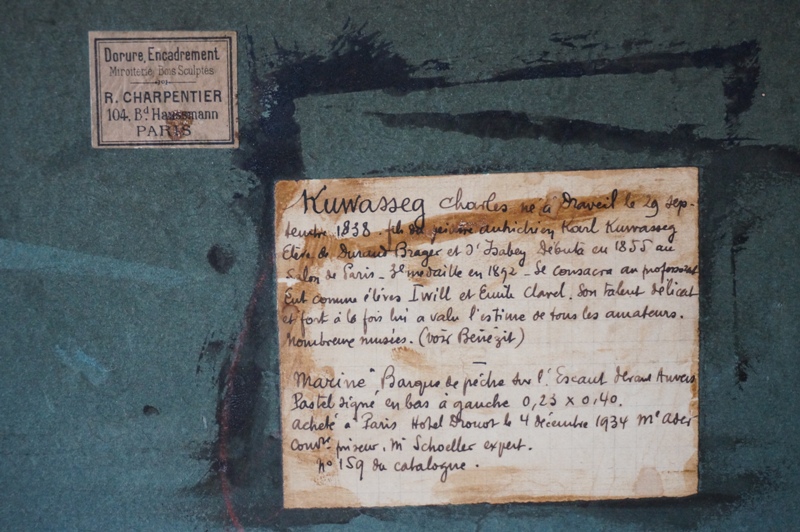 Dorure, Encadrement
Miroiterie, Bois Sculptés
R. CHARPENTIER
104, Bd Haussmann
PARIS
Kuwasseg Charles né à Draveil le 29 sep-
tembre 1838. fils du peintre autrichien Karl Kuwasseg
Elève de Durand Brager et d'Isabey Débuta en 1855 au
Salon de Paris - 3e médaille en 1892 - Se consacra au professorat
Eut comme élèves Iwill et Emile Clarel. Son talent délicat
et fort à la fois lui a valu l'estime de tous les amateurs.
Nombreux musées. (voir Bénézit)
"Marine" Barques de pêche sur l'Escaut devant Anvers
Pastel signé en bas à gauche 0,23 x 0,40.
acheté à Paris Hotel Drouot le 4 décembre 1934 Me Ader
priseur. Mr Schoeller expert.
no 159 du catalogue.